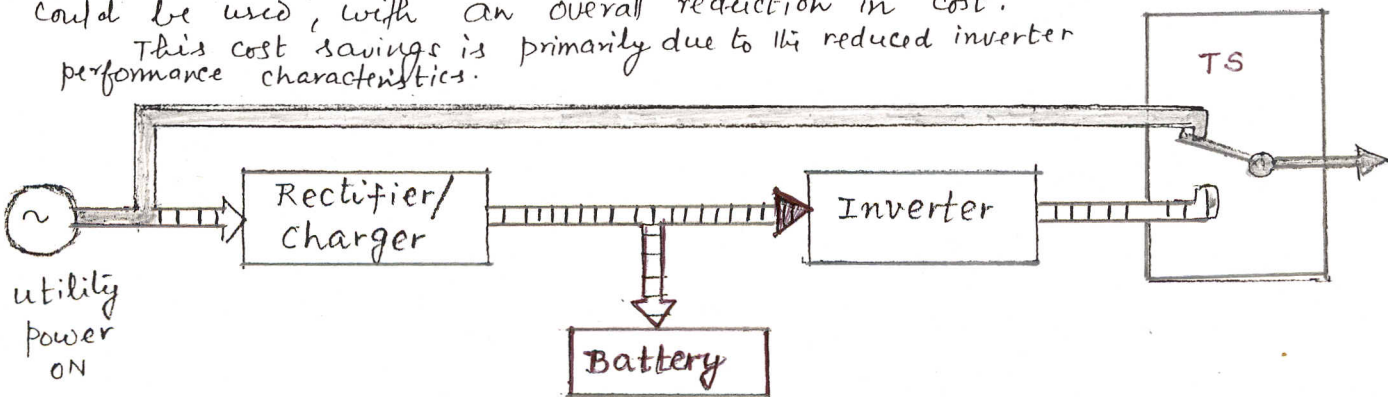 could be used, with an overall reduction in cost.
This cost savings is primarily due to the reduced inverter
performance characteristics.
TS
Rectifier/
Charger
Inverter
~
utility
power
ON
Battery